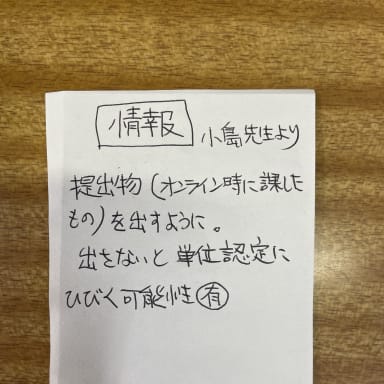 情報
小島先生より
提出物(オンライン時に課した
もの)を出すように。
出さないと単位認定に
ひびく可能性有